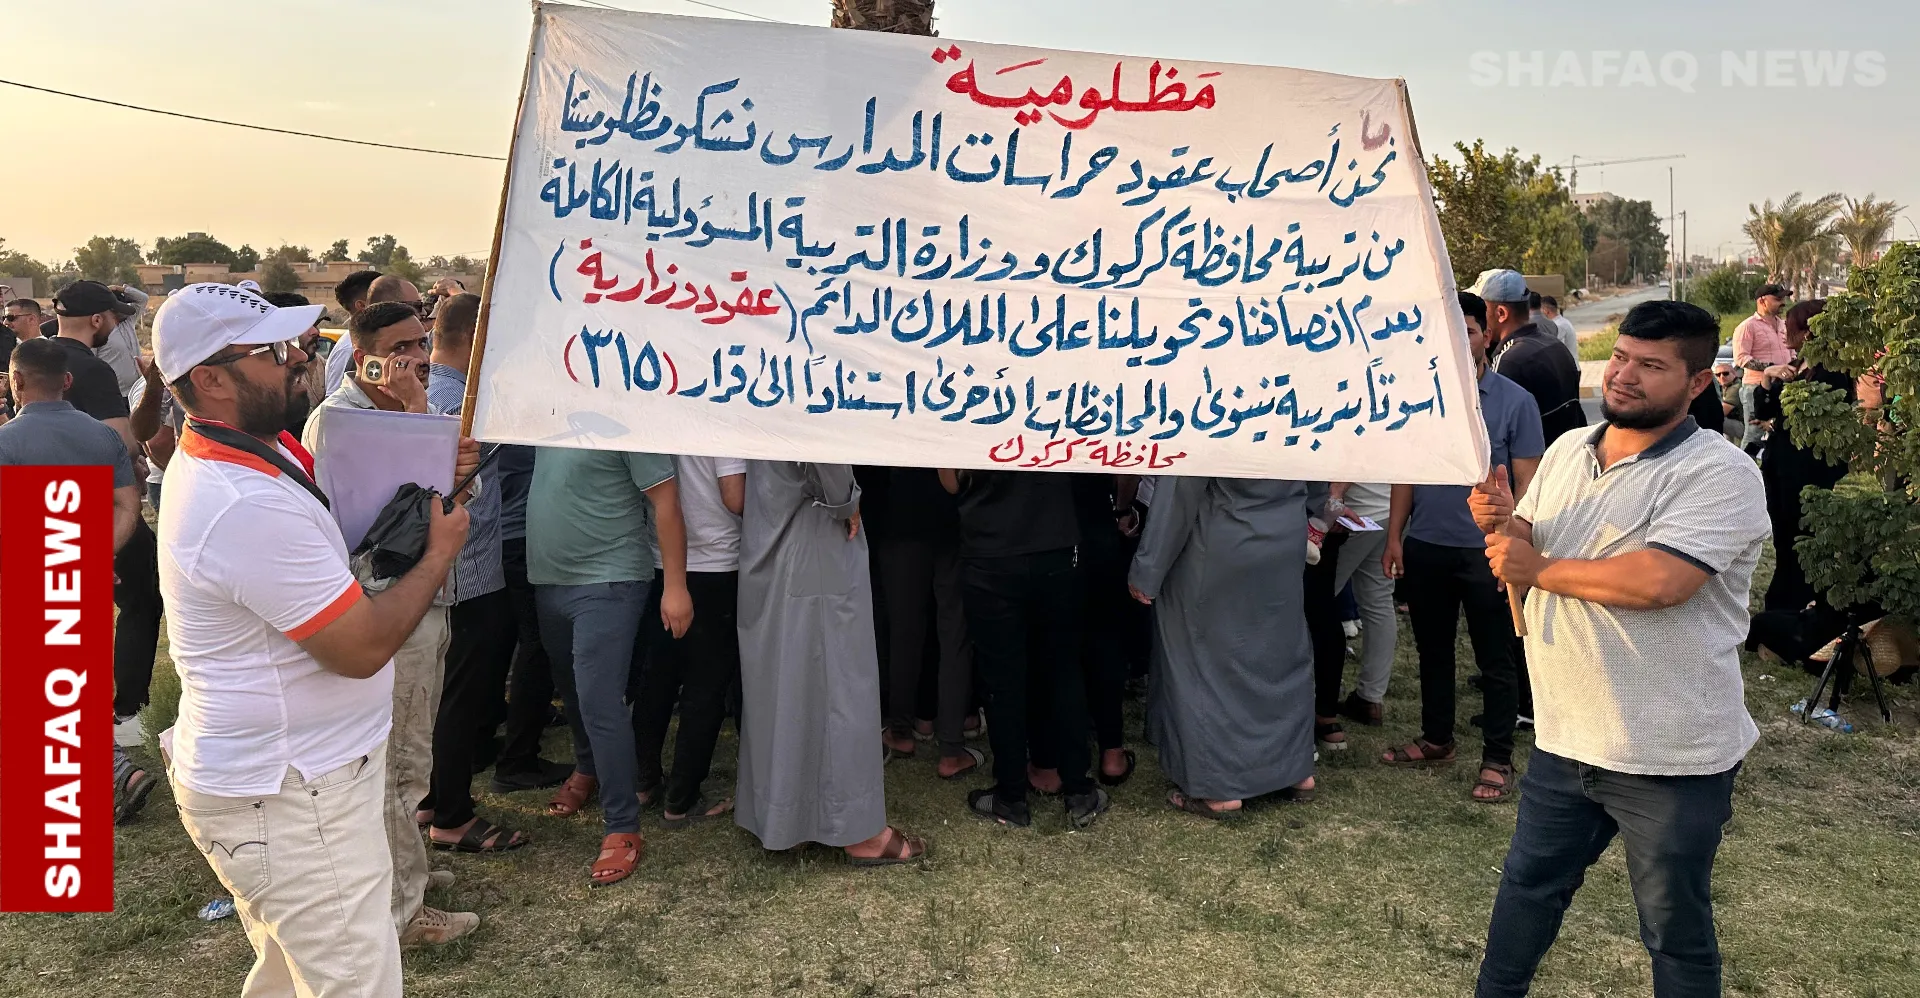 SHAFAQ NEWS
مَظلوميَة
نحن أصحاب عقود حراسات المدارس نشكو مظلوميتنا
من تربية محافظة كركوك و وزارة التربية المسؤولية الكاملة
بعدم انصافنا وتحويلنا على الملاك الدائم (عقود وزارية)
أسوتاً بتربية نينوى والمحافظات الأخرى استناداً الى قرار (٣١٥)
محافظة كركوك
SHAFAQ NEWS